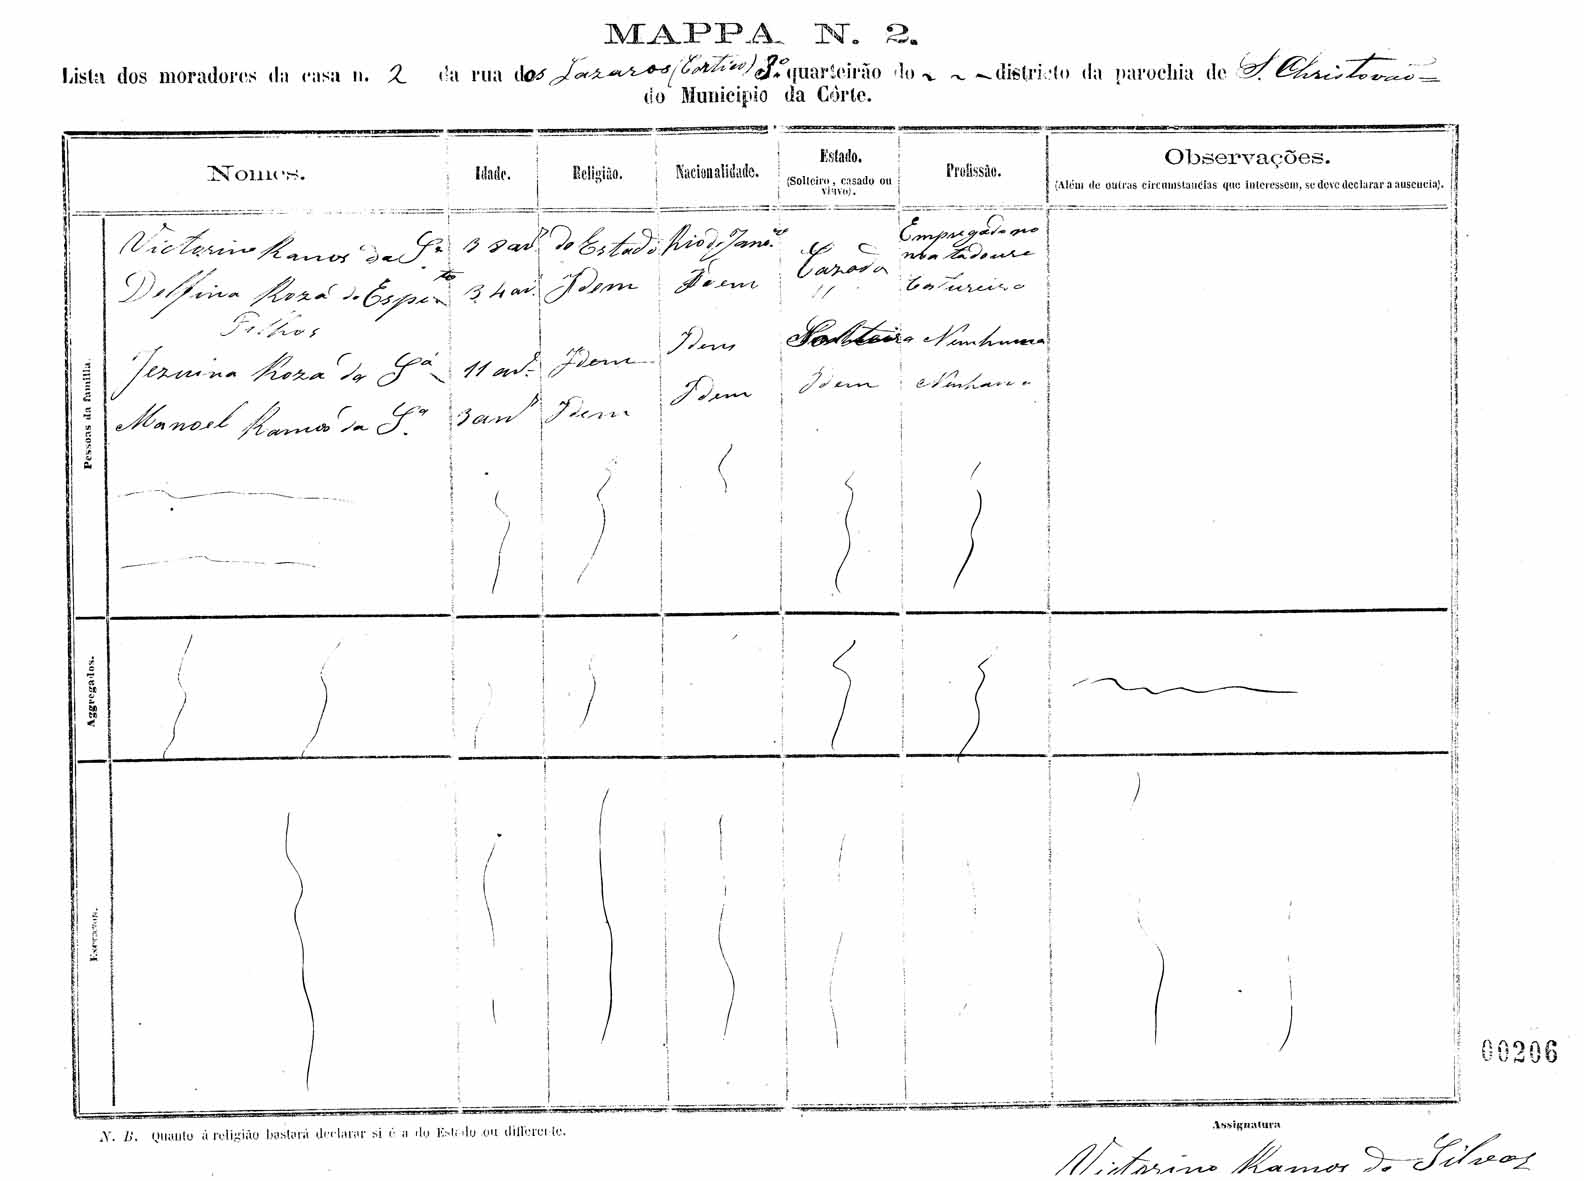 MAPPA N. 2.
Lista dos moradores da casa n. 2 da rua dos Lazaros (Cortiço) 3º quarteirão do ~ ~ ~ districto da parochia de S. Christovão =
do Municipio da Côrte.
Nomes. Idade. Religião. Nacionalidade. Estado. (Solteiro, casado ou viuvo). Profissão. Observações. (Além de outras circumstancias que interessem, se deve declarar a ausencia).
Pessoas da familia.
Victorino Ramos da Sª 38 anˢ do Estado Rio de Janº Cazado Empregado no matadouro
Delfina Roza do Espᵗᵒ 34 anˢ Idem Idem " Costureira
Filhos
Jezuina Roza da Sª 11 anˢ Idem Idem Solteira Nenhuma
Manoel Ramos da Sª 3 anˢ Idem Idem Idem Nenhuma
Aggregados.
Escravos.
00206
N. B. Quanto á religião bastará declarar si é a do Estado ou differente.
Assignatura
Victorino Ramos da Silva